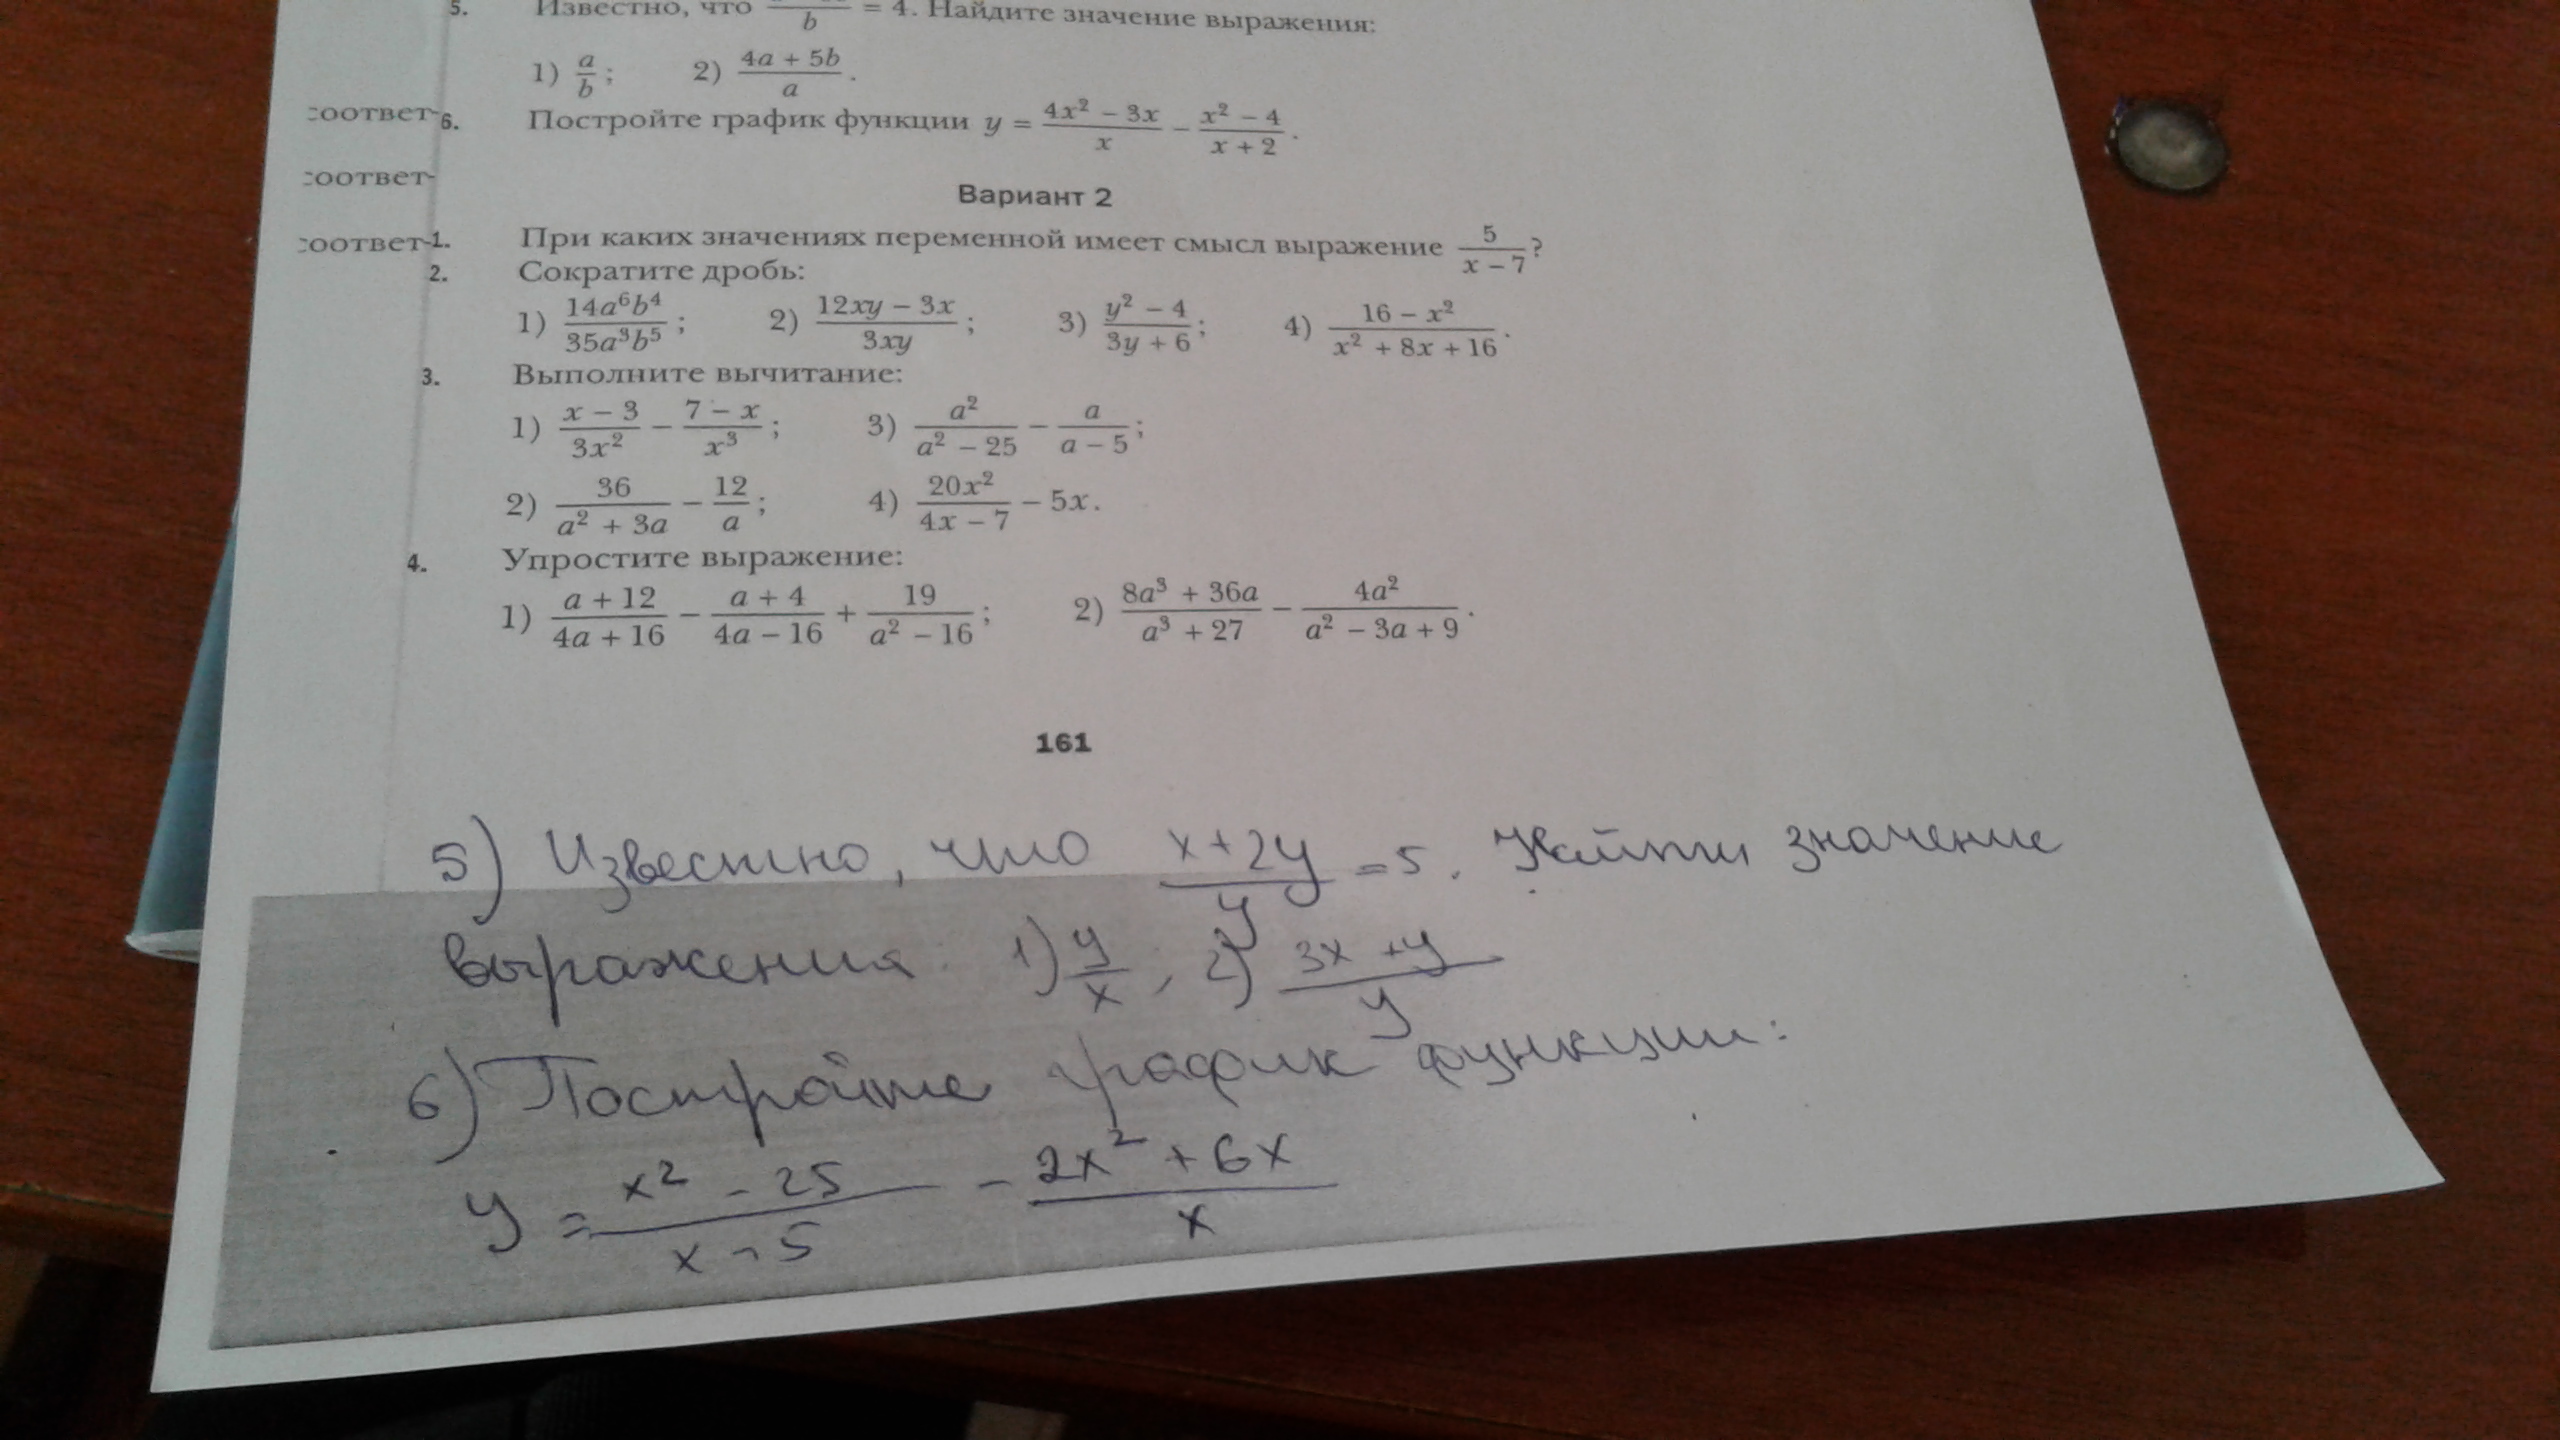 5. Известно, что b = 4. Найдите значение выражения:
1) a/b; 2) (4a + 5b)/a.
соответ-
6. Постройте график функции y = (4x² − 3x)/x − (x² − 4)/(x + 2).
соответ-
Вариант 2
соответ-
1. При каких значениях переменной имеет смысл выражение 5/(x − 7)?
2. Сократите дробь:
1) 14a⁶b⁴/35a³b⁵; 2) (12xy − 3x)/3xy; 3) (y² − 4)/(3y + 6); 4) (16 − x²)/(x² + 8x + 16).
3. Выполните вычитание:
1) (x − 3)/3x² − (7 − x)/x³; 3) a²/(a² − 25) − a/(a − 5);
2) 36/(a² + 3a) − 12/a; 4) 20x²/(4x − 7) − 5x.
4. Упростите выражение:
1) (a + 12)/(4a + 16) − (a + 4)/(4a − 16) + 19/(a² − 16); 2) (8a³ + 36a)/(a³ + 27) − 4a²/(a² − 3a + 9).
161
5) Известно, что (x + 2y)/y = 5. Найти значение
выражения: 1) y/x; 2) (3x + y)/y
6) Постройте график функции:
y = (x² − 25)/(x − 5) − (2x² + 6x)/x